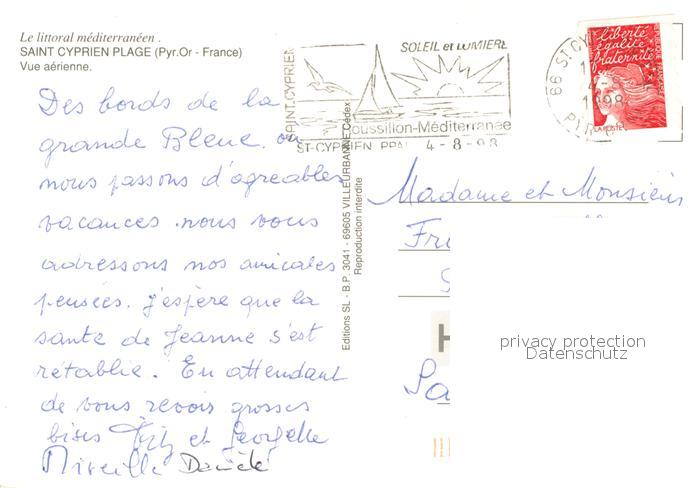 Le littoral méditerranéen .
SAINT CYPRIEN PLAGE (Pyr.Or - France)
Vue aérienne.
Des bords de la
grande Bleue. où
nous passons d'agréables
vacances nous vous
adressons nos amicales
pensées. J'espère que la
santé de Jeanne s'est
rétablie. En attendant
de vous revoir grosses
bises et Georgette
Mireille Daniele
SAINT.CYPRIEN
SOLEIL et LUMIERE
Roussillon-Méditerranée
ST-CYPRIEN PPAL 4-8-98
Editions SL - B.P. 3041 - 69605 VILLEURBANNE Cédex
Reproduction interdite
66 ST.CY
1998
liberté
égalité
fraternité
LA POSTE
Madame et Monsieur
privacy protection
Datenschutz